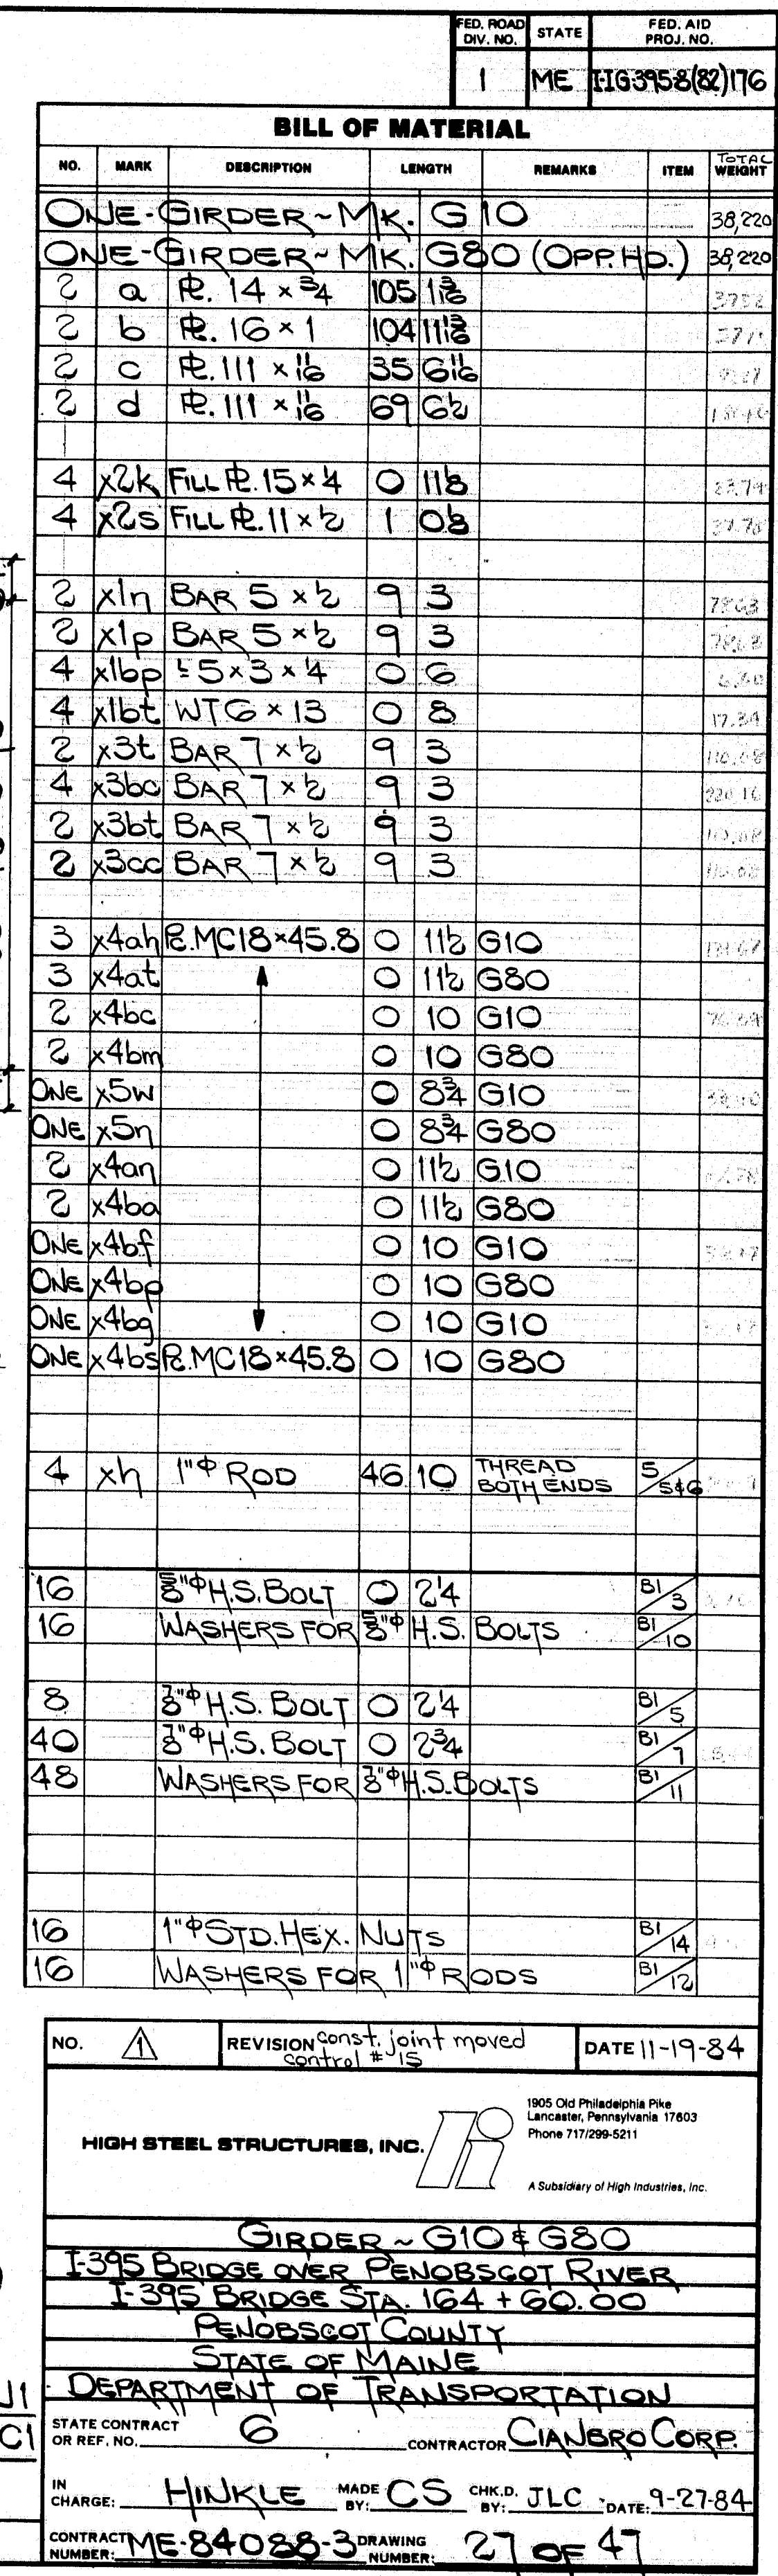 FED. ROAD DIV. NO. STATE FED. AID PROJ. NO.
1 ME I-IG-395-8(82)176
BILL OF MATERIAL
NO. MARK DESCRIPTION LENGTH REMARKS ITEM TOTAL WEIGHT
ONE-GIRDER~MK. G10 38,220
ONE-GIRDER~MK. G80 (OPP.HD.) 38,220
2 a PL. 14 × 3/4 105 1 3/16
2 b PL. 16 × 1 104 11 13/16
2 c PL. 111 × 11/16 35 6 1/16
2 d PL. 111 × 11/16 69 6 1/2
4 x2k FILL PL. 15 × 1/4 0 11 1/8 23.74
4 x2s FILL PL. 11 × 1/2 1 0 1/8
2 x1n BAR 5 × 1/2 9 3 78.63
2 x1p BAR 5 × 1/2 9 3 78.63
4 x1bp L 5 × 3 × 1/4 0 6
4 x1bt WT6 × 13 0 8 17.34
2 x3t BAR 7 × 1/2 9 3 110.08
4 x3bc BAR 7 × 1/2 9 3 220.16
2 x3bt BAR 7 × 1/2 9 3 110.08
2 x3cc BAR 7 × 1/2 9 3 110.08
3 x4ah PC. MC18×45.8 0 11 1/2 G10
3 x4at 0 11 1/2 G80
2 x4bc 0 10 G10
2 x4bm 0 10 G80
ONE x5w 0 8 3/4 G10
ONE x5n 0 8 3/4 G80
2 x4an 0 11 1/2 G10
2 x4ba 0 11 1/2 G80
ONE x4bf 0 10 G10
ONE x4bp 0 10 G80
ONE x4bg 0 10 G10
ONE x4bs PC. MC18×45.8 0 10 G80
4 xh 1"Φ ROD 46 10 THREAD BOTH ENDS 5/5&6
16 5/8"Φ H.S. BOLT 0 2 1/4 B1/3
16 WASHERS FOR 5/8"Φ H.S. BOLTS B1/10
8 7/8"Φ H.S. BOLT 0 2 1/4 B1/5
40 7/8"Φ H.S. BOLT 0 2 3/4 B1/7
48 WASHERS FOR 7/8"Φ H.S. BOLTS B1/11
16 1"Φ STD. HEX. NUTS B1/14
16 WASHERS FOR 1"Φ RODS B1/12
NO. 1 REVISION const. joint moved control # 15 DATE 11-19-84
HIGH STEEL STRUCTURES, INC.
1905 Old Philadelphia Pike
Lancaster, Pennsylvania 17603
Phone 717/299-5211
A Subsidiary of High Industries, Inc.
GIRDER ~ G10 & G80
I-395 BRIDGE OVER PENOBSCOT RIVER
I-395 BRIDGE STA. 164 + 60.00
PENOBSCOT COUNTY
STATE OF MAINE
DEPARTMENT OF TRANSPORTATION
STATE CONTRACT OR REF. NO. 6 CONTRACTOR CIANBRO CORP.
IN CHARGE: HINKLE MADE BY: CS CHK.D. BY: JLC DATE: 9-27-84
CONTRACT NUMBER: ME-84088-3 DRAWING NUMBER: 27 OF 47
J1
C1